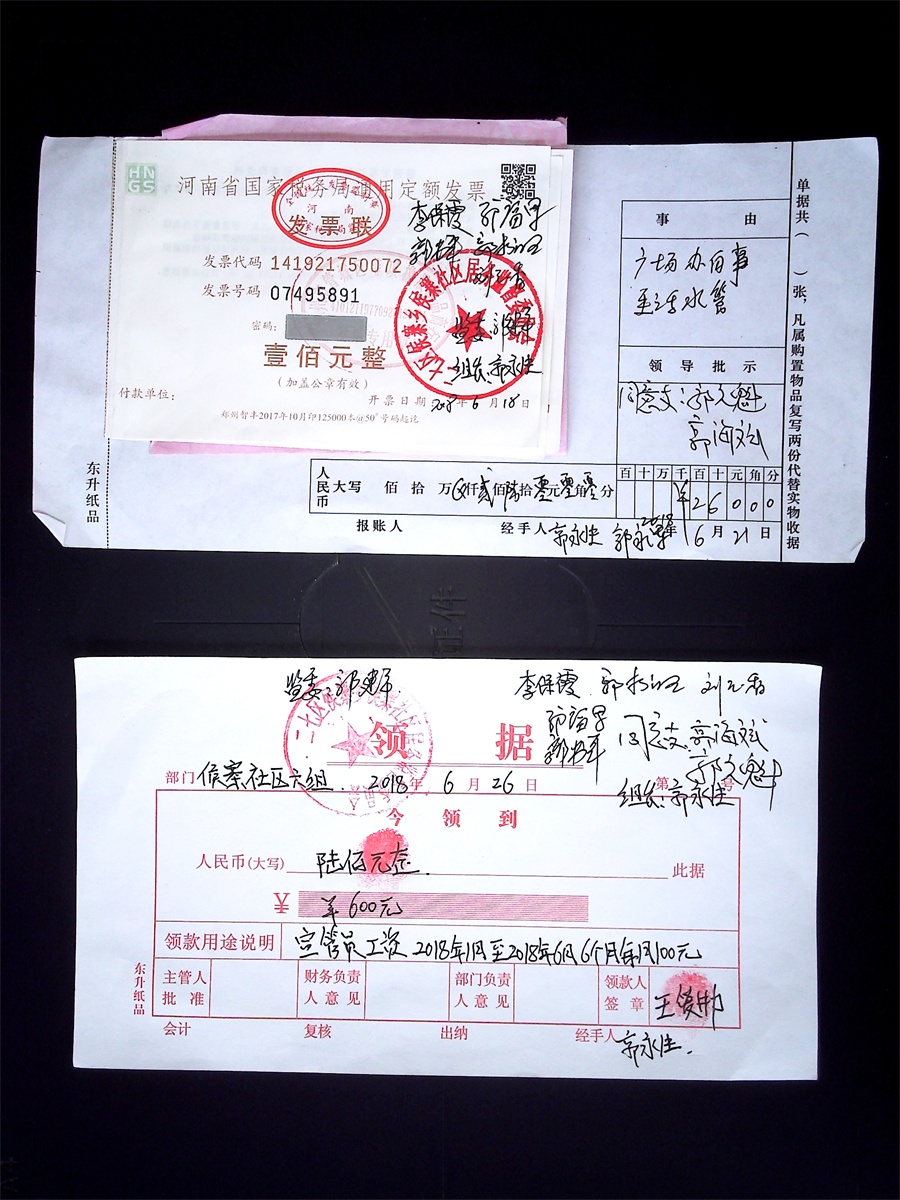 HN
GS
河南省国家税务局通用定额发票
河 南
发 票 联
发票代码 141921750072
发票号码 07495891
密码:
壹佰元整
(加盖公章有效)
付款单位:
开票日期 2018年 6 月 18 日
郑州智丰2017年10月印125000本@50° 号码起讫
李保霞
监委:
组长:郭永生
东升纸品
事 由
领 导 批 示
同意支:郭文魁
郭海斌
单据共( )张,凡属购置物品复写两份代替实物收据
百 十 万 千 百 十 元 角 分
¥ 2 6 0 0 0
人民币 大写 佰 拾 万 仟 贰 佰 陆 拾 零 元 零 角 零 分
报账人 经手人 郭永生 2018年 6 月 21 日
监委:郭建军
李保霞
领 据
同意支:郭海斌
郭文魁
组长:郭永生
部门 侯寨社区六组. 2018年 6 月 26 日 第 号
今 领 到
人民币(大写) 陆佰元整. 此据
¥ 羊600元
领款用途说明 空管员工资 2018年1月至2018年6月6个月每月100元
主管人批 准 财务负责人 意 见 部门负责人 意 见 领款人签 章
会计 复核 出纳 经手人 郭永生.
东升纸品